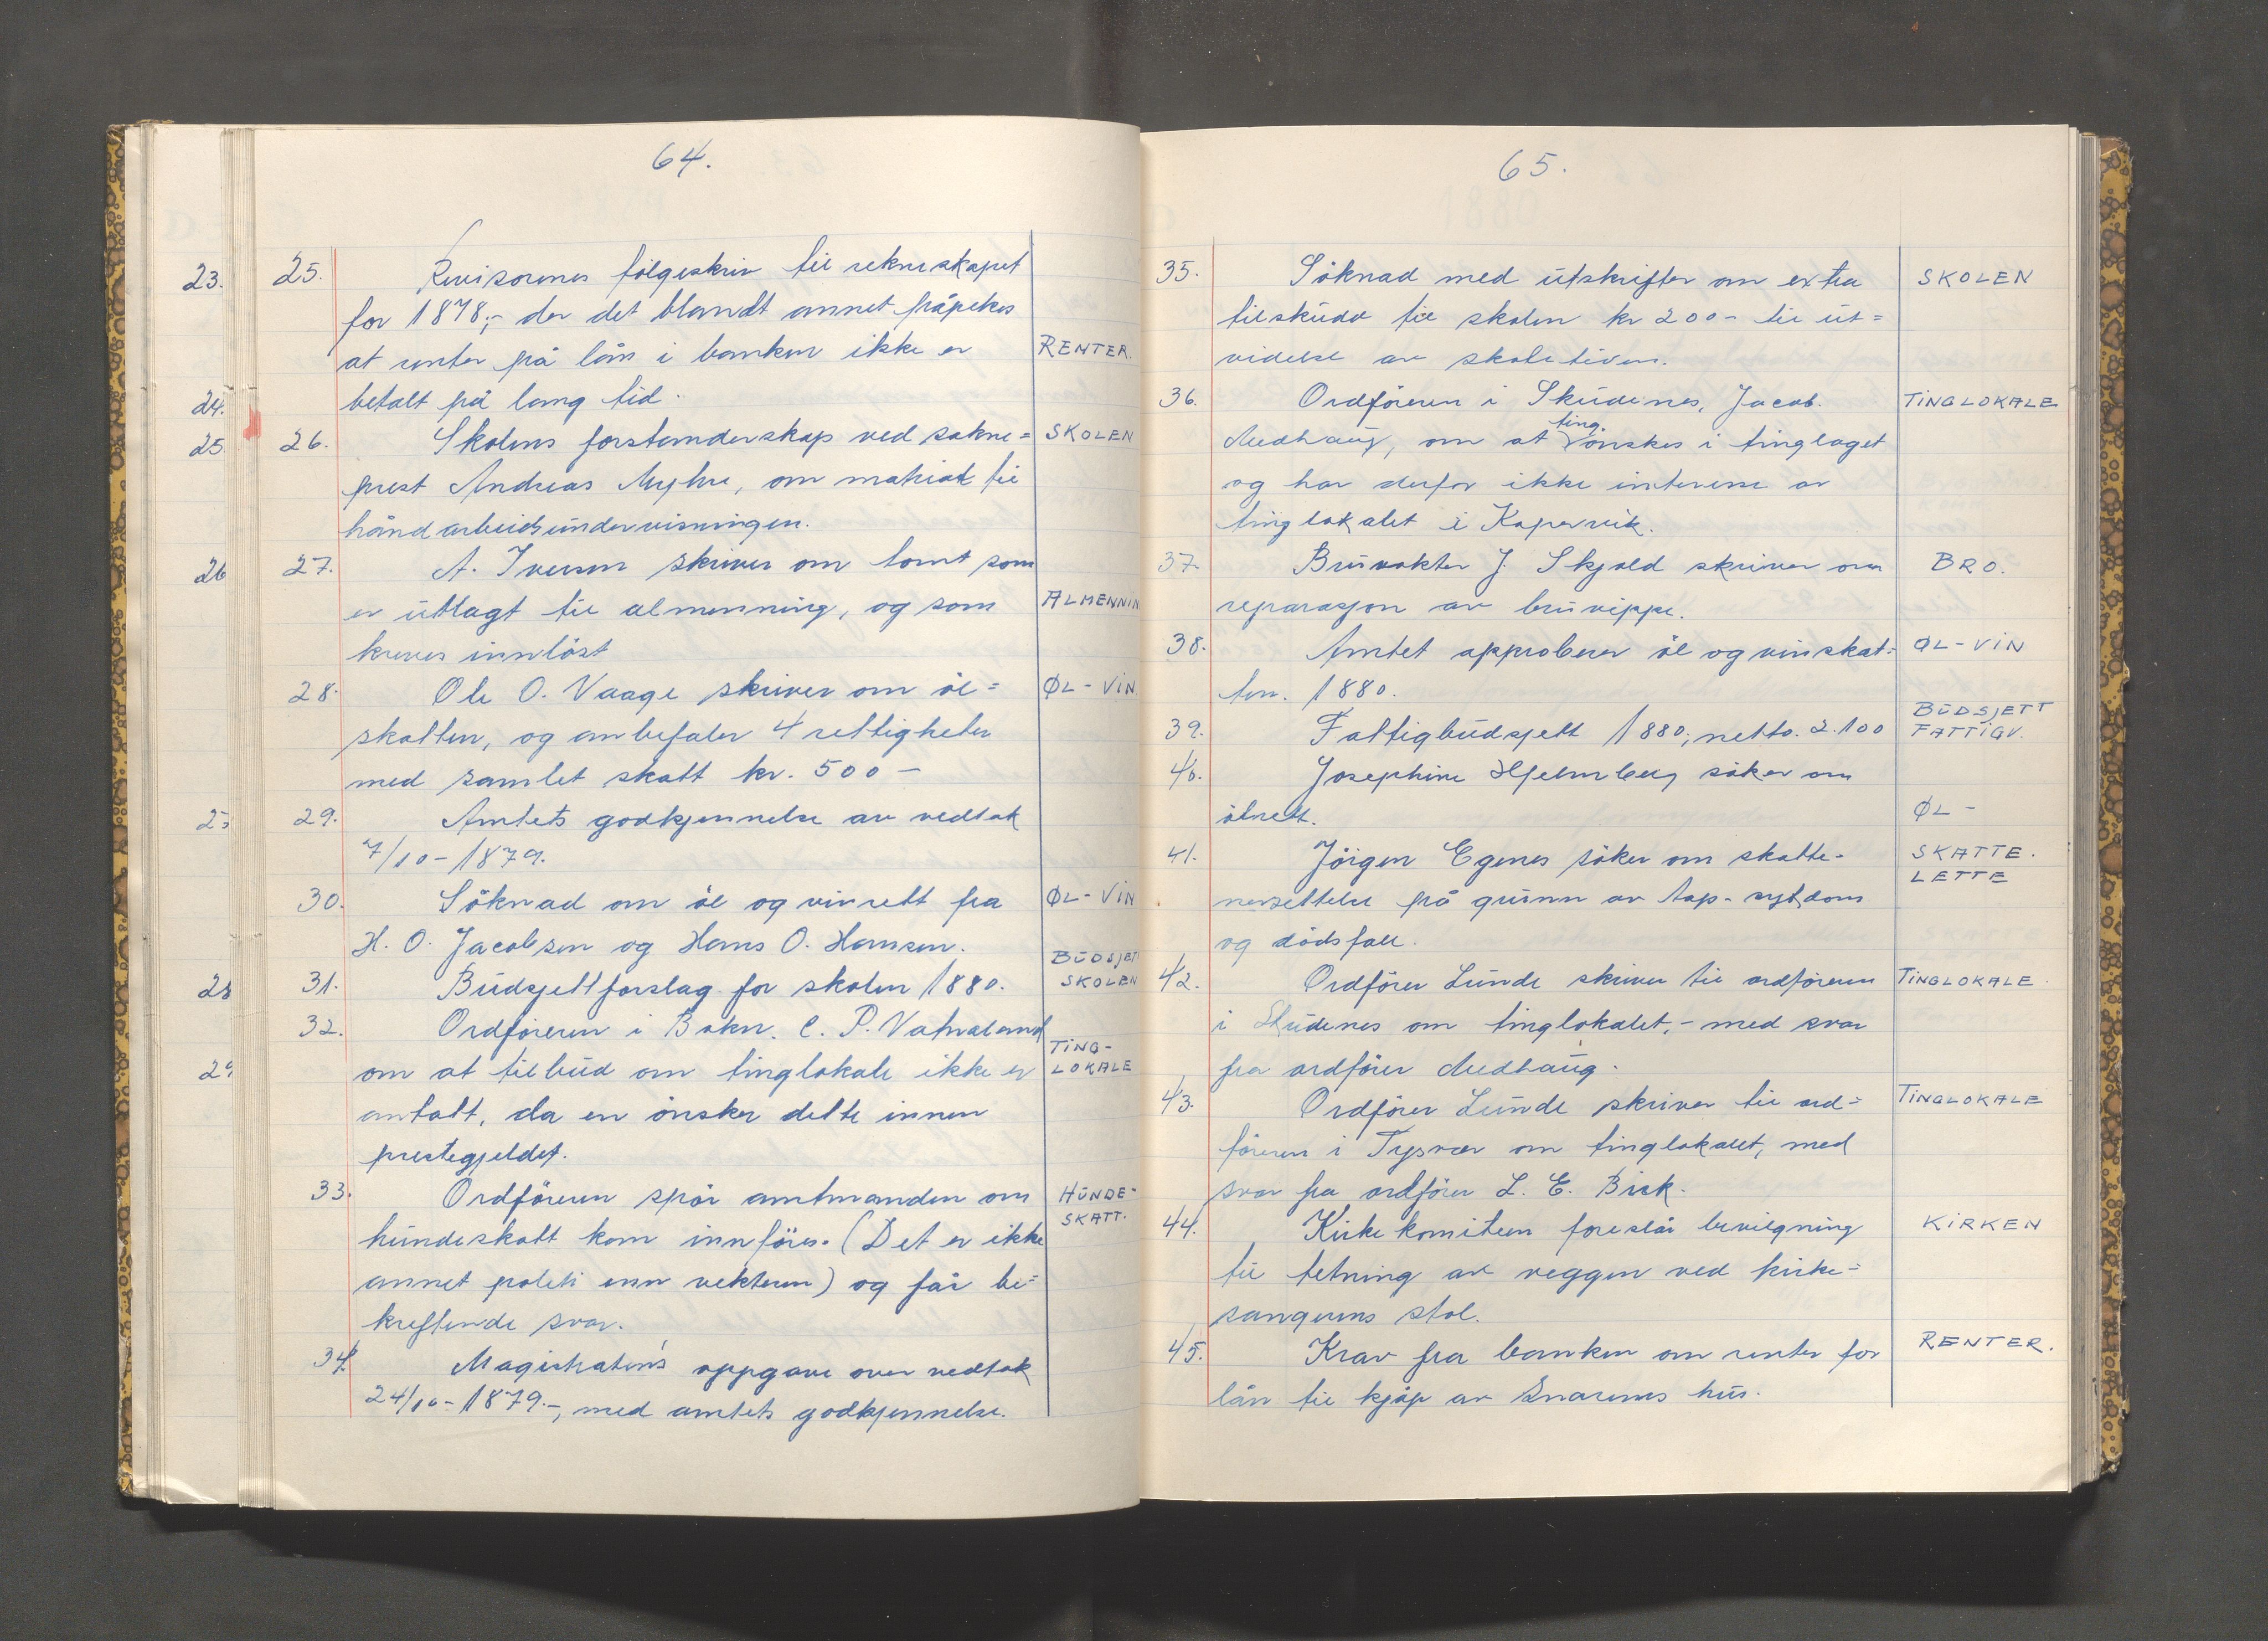 64.
23.
25. Revisorenes følgeskriv til rekneskapet
for 1878;- der det blandt annet påpekes
at renter på lån i banken ikke er RENTER.
24. betalt på lang tid.
25 26. Skolens forstanderskap ved sokne= SKOLEN
prest Andreas Myhre, om matriek til
håndarbeidsundervisningen.
26 27. A. Iversen skriver om tomt som
er utlagt til almenning, og som ALMENNIN
kreves innløst
28. Ole O. Vaage skriver om øl= ØL-VIN.
skatten, og anbefaler 4 rettigheter
med samlet skatt kr. 500-
29. Amtets godkjennelse av vedtak
7/10-1879.
30. Søknad om øl og vinrett fra ØL-VIN
H. O. Jacobsen og Hans O. Hansen.
BUDSJET
28 31. Budsjettforslag for skolen 1880. SKOLEN
32. Ordføreren i Bokn. C. P. Vatnaland
TING-
29 om at tilbud om tinglokale ikke er LOKALE
antatt, da en ønsker dette innen
prestegjeldet.
33. Ordføreren spør amtmanden om HUNDE-
SKATT.
hundeskatt kan innføres. (Det er ikke
annet politi enn vekteren) og får be=
kreftende svar.
34. Magistraten's oppgave over vedtak
24/10-1879.-, med amtets godkjennelse.
65.
35. Søknad med utskrifter om extra SKOLEN
tilskudd til skolen kr 200- til ut=
videlse av skoletiden.
36. Ordføreren i Skudenes, Jacob. TINGLOKALE
ting
Medhaug, om at ønskes i tinglaget
og har derfor ikke interesse av
tinglokalet i Kopervik.
37. Bruvakter J. Skjold skriver om BRO.
reparasjon av bruvippe.
38. Amtet approberer øl og vinskat= ØL-VIN
ten. 1880.
BUDSJETT
39. Fattigbudsjett 1880; netto. 2.100 FATTIGV.
40. Josephine Hjelmberg søker om
ølrett. ØL-
41. Jørgen Egenes søker om skatte- SKATTE.
LETTE
nersettelse på grunn av tap-sykdom
og dødsfall.
42. Ordfører Lunde skriver til ordføreren TINGLOKALE.
i Skudenes om tinglokalet,- med svar
fra ordfører Medhaug.
43. Ordfører Lunde skriver til ord= TINGLOKALE
føreren i Tysvær om tinglokalet, med
svar fra ordfører L. E. Birk.
44. Kirkekomiteen foreslår bevilgning KIRKEN
til tetning av veggen ved kirke=
sangerens stol.
45. Krav fra banken om renter for RENTER.
lån til kjøp av Snarenes hus.